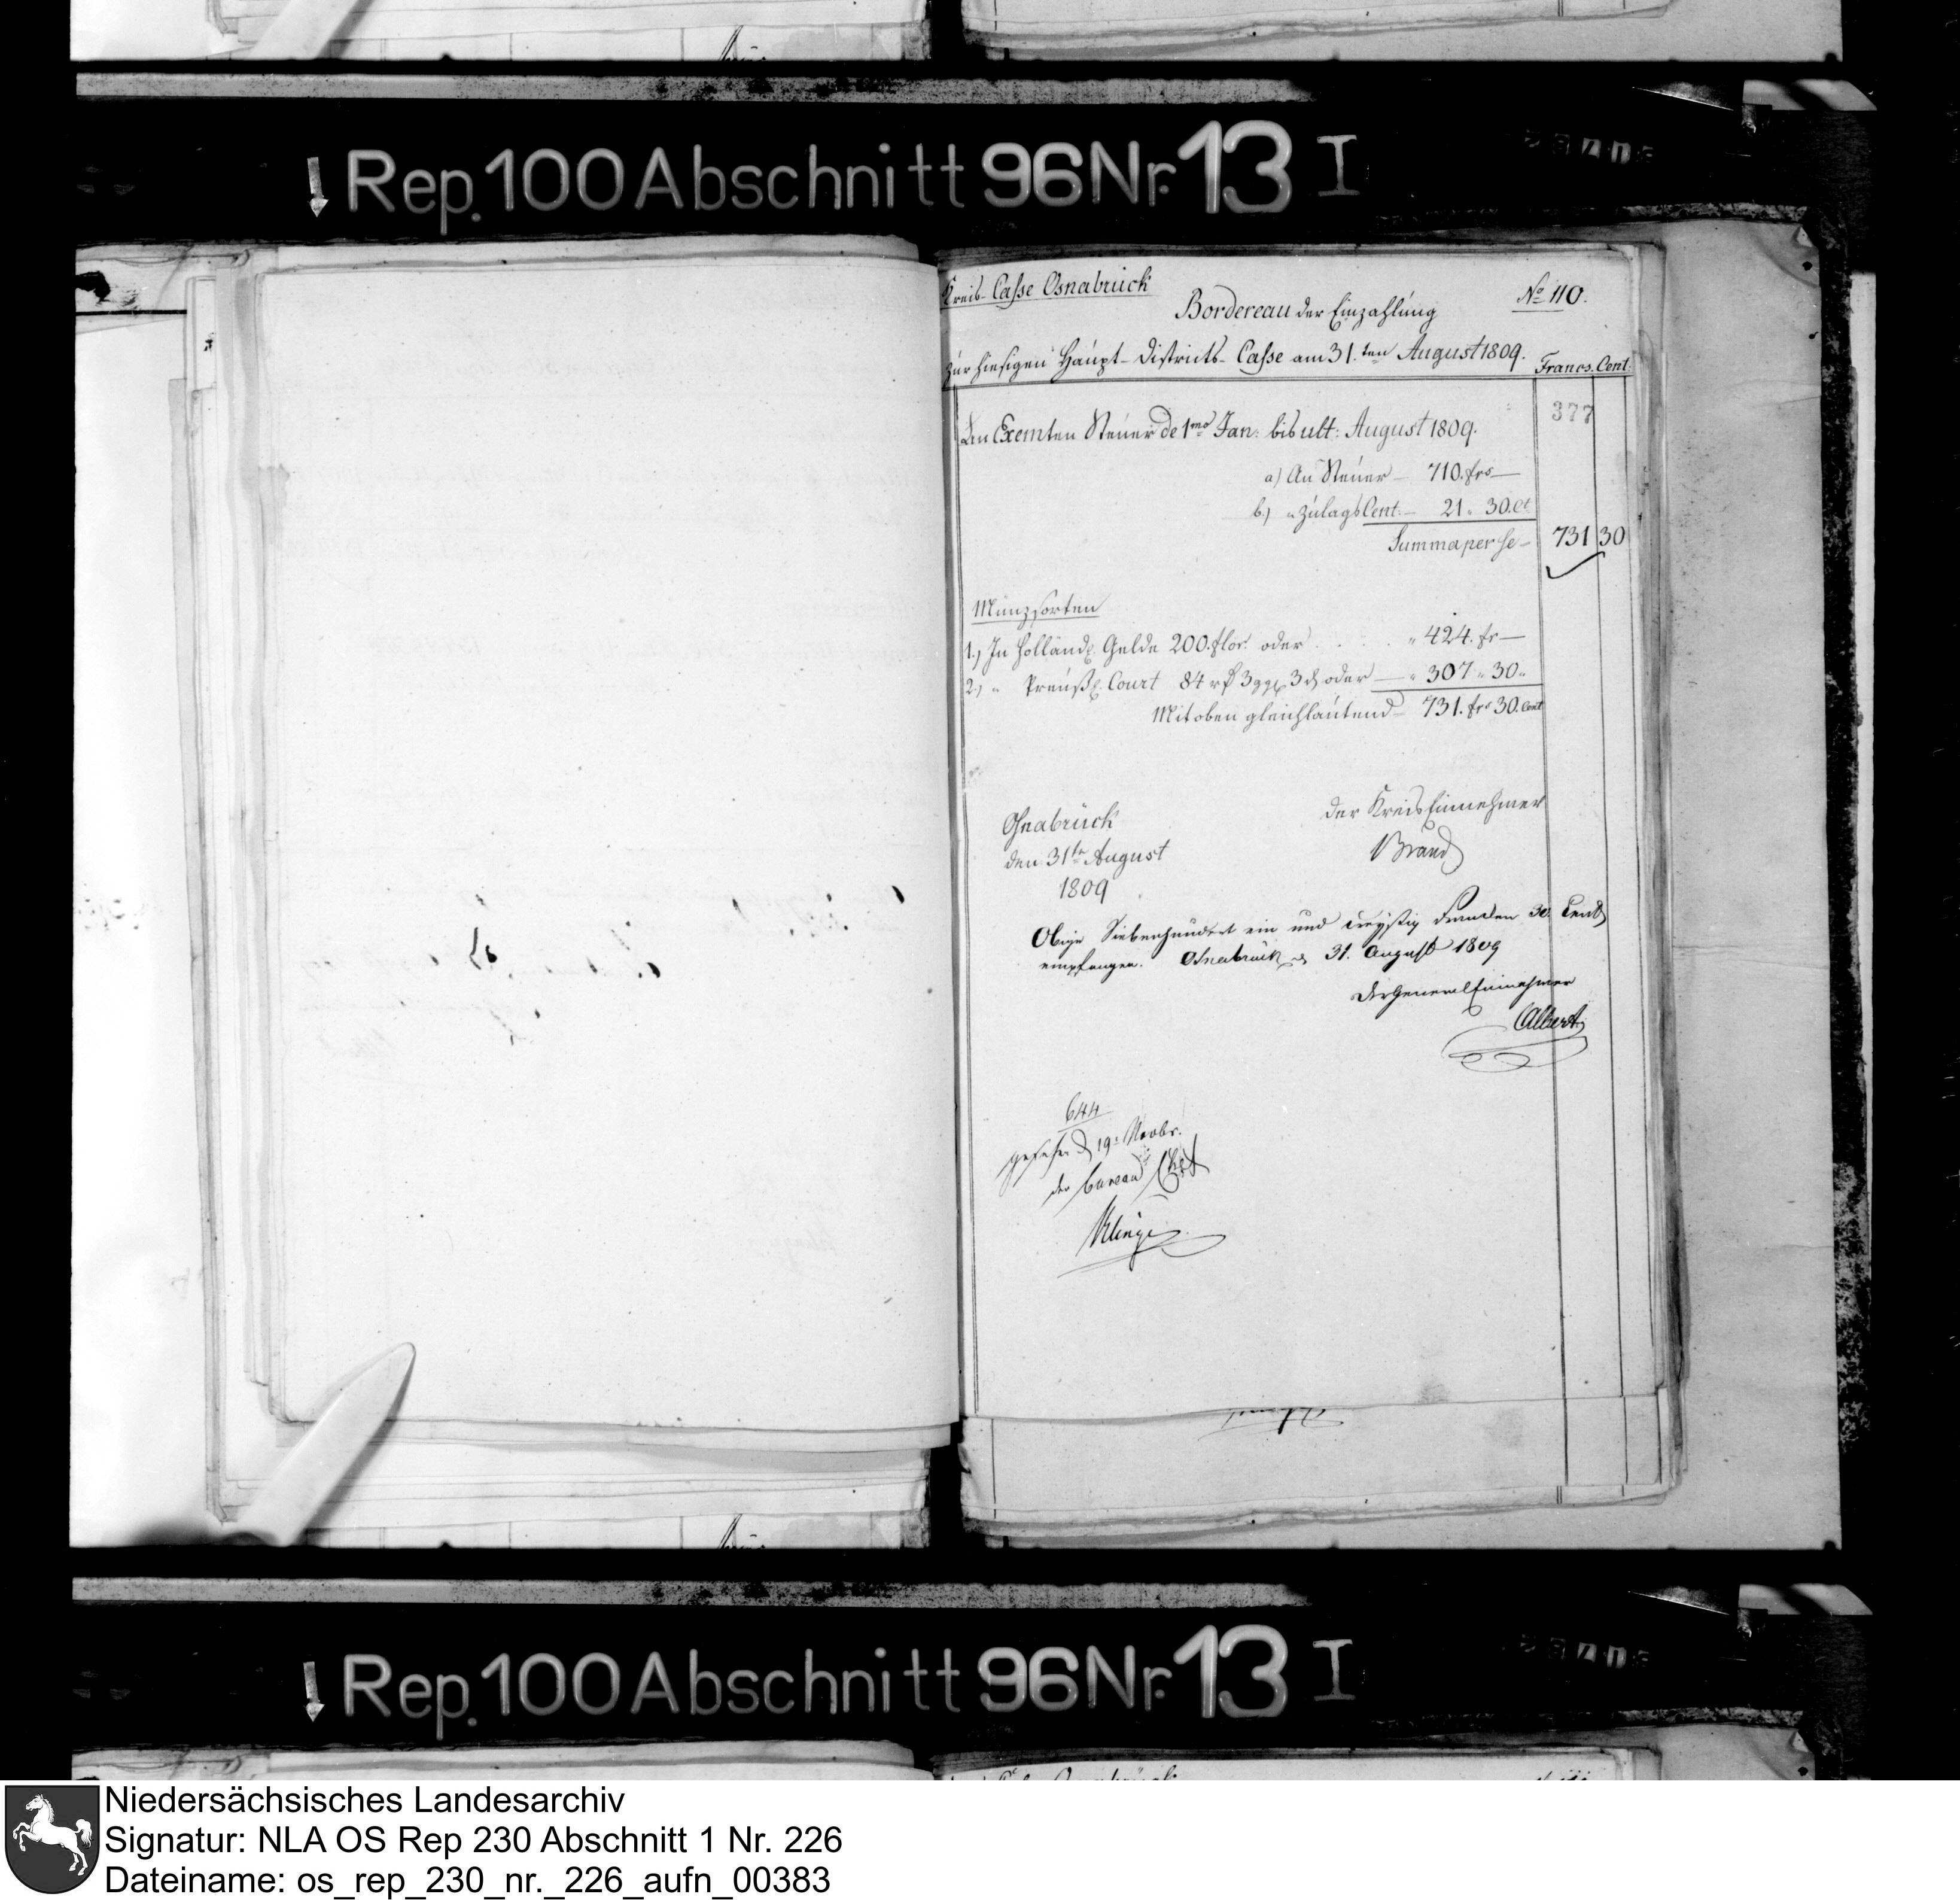 Rep. 100 Abschnitt 96 Nr. 13 I
Kreis-Casse Osnabrück
No 110.
Bordereau der Einzahlung
zur hiesigen Haupt-Districts-Casse am 31.ten August 1809.
Francs. Cent.
377
An Exemten Steuer de 1mo Jan: bis ult: August 1809.
a) An Steuer — 710. frs —
b.) " Zulags Cent. — 21 " 30. Ct
Summa per se — 731 30
Münzsorten
1.) In Holländ. Gelde 200. flor. oder . . . . " 424. fr —
2.) " Preuß. Court 84 rt 3 ggr 3 d oder — " 307 " 30 "
Mit oben gleichlautend — 731. frs 30. Cent
Osnabrück
den 31ten August
1809
der Kreis Einnehmer
Brand
Obige Siebenhundert ein und dreyßig Franken 30 Cent
empfangen. Osnabrück d 31. August 1809
Der General Einnehmer
Albert
644
gesehen d 19. Novbr.
der Bureau Chef
Klinge
Rep. 100 Abschnitt 96 Nr. 13 I
Niedersächsisches Landesarchiv
Signatur: NLA OS Rep 230 Abschnitt 1 Nr. 226
Dateiname: os_rep_230_nr._226_aufn_00383